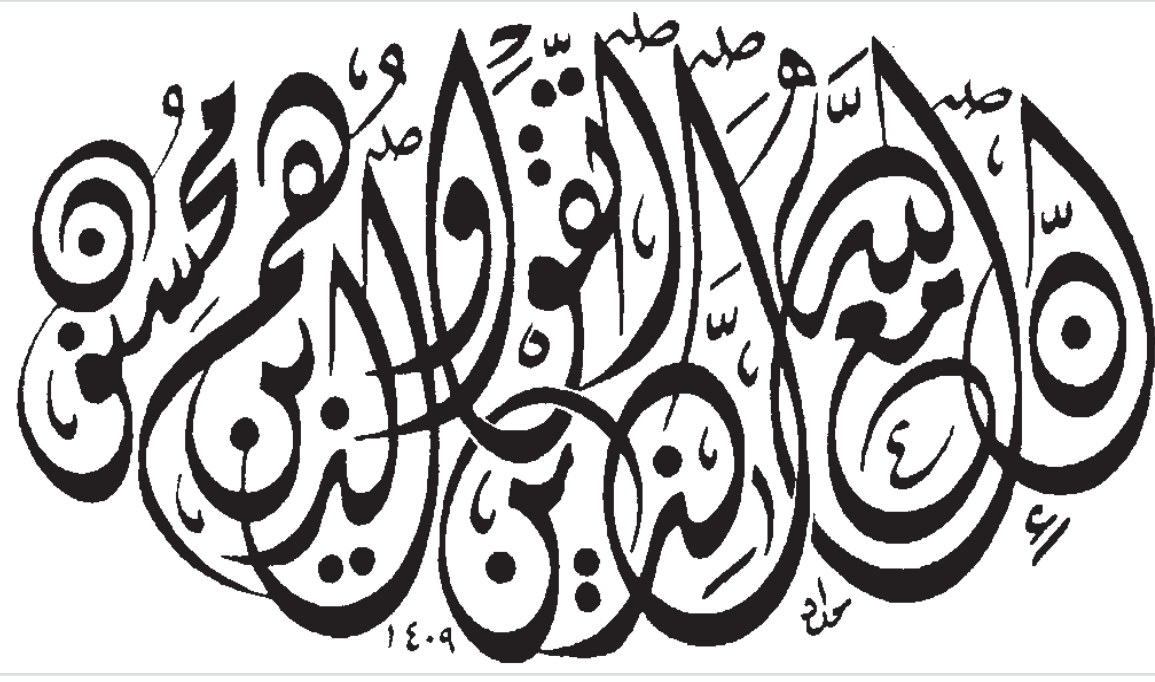 إِنَّ اللَّهَ مَعَ الَّذِينَ اتَّقَوا وَّالَّذِينَ هُم مُّحْسِنُونَ
١٤٠٩